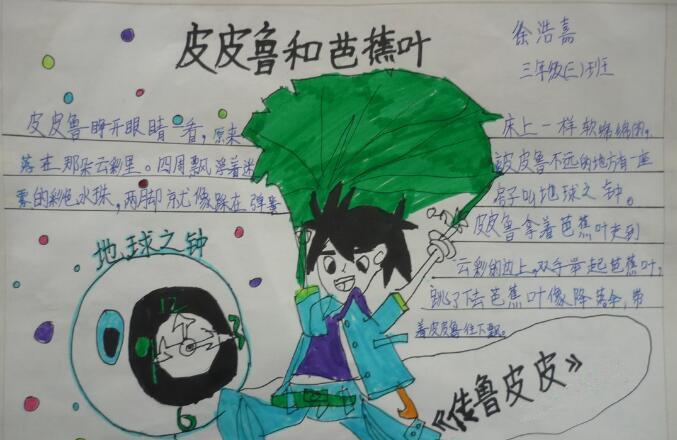 皮皮鲁和芭蕉叶
徐浩嘉
三年级(三)班
皮皮鲁睁开眼睛一看,原来
落在那朵云彩里。四周飘浮着迷
雾的彩色水珠,两脚就像踩在弹簧
床上一样软绵绵的,
皮皮鲁不远的地方有一座
房子叫地球之钟。
皮皮鲁拿着芭蕉叶走到
云彩的边上,双手举起芭蕉叶,
跳了下去芭蕉叶像降落伞,带
着皮皮鲁往下飘。
地球之钟
12
3
6
《传鲁皮皮》